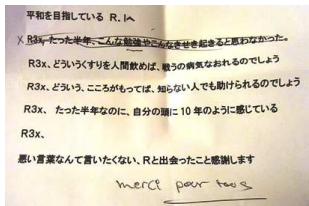 平和を目指している R. lへ
x R3x, たった半年、こんな勉強やこんなきせき起きると思わなかった。
R3x、どういうくすりを人間飲めば、戦うの病気なおれるのでしょう
R3x、どういう、こころがもってば、知らない人でも助けられるのでしょう
R3x、 たった半年なのに、自分の頭に 10 年のように感じている
R3x、
悪い言葉なんて言いたくない、Rと出会ったこと感謝します
merci pour tous